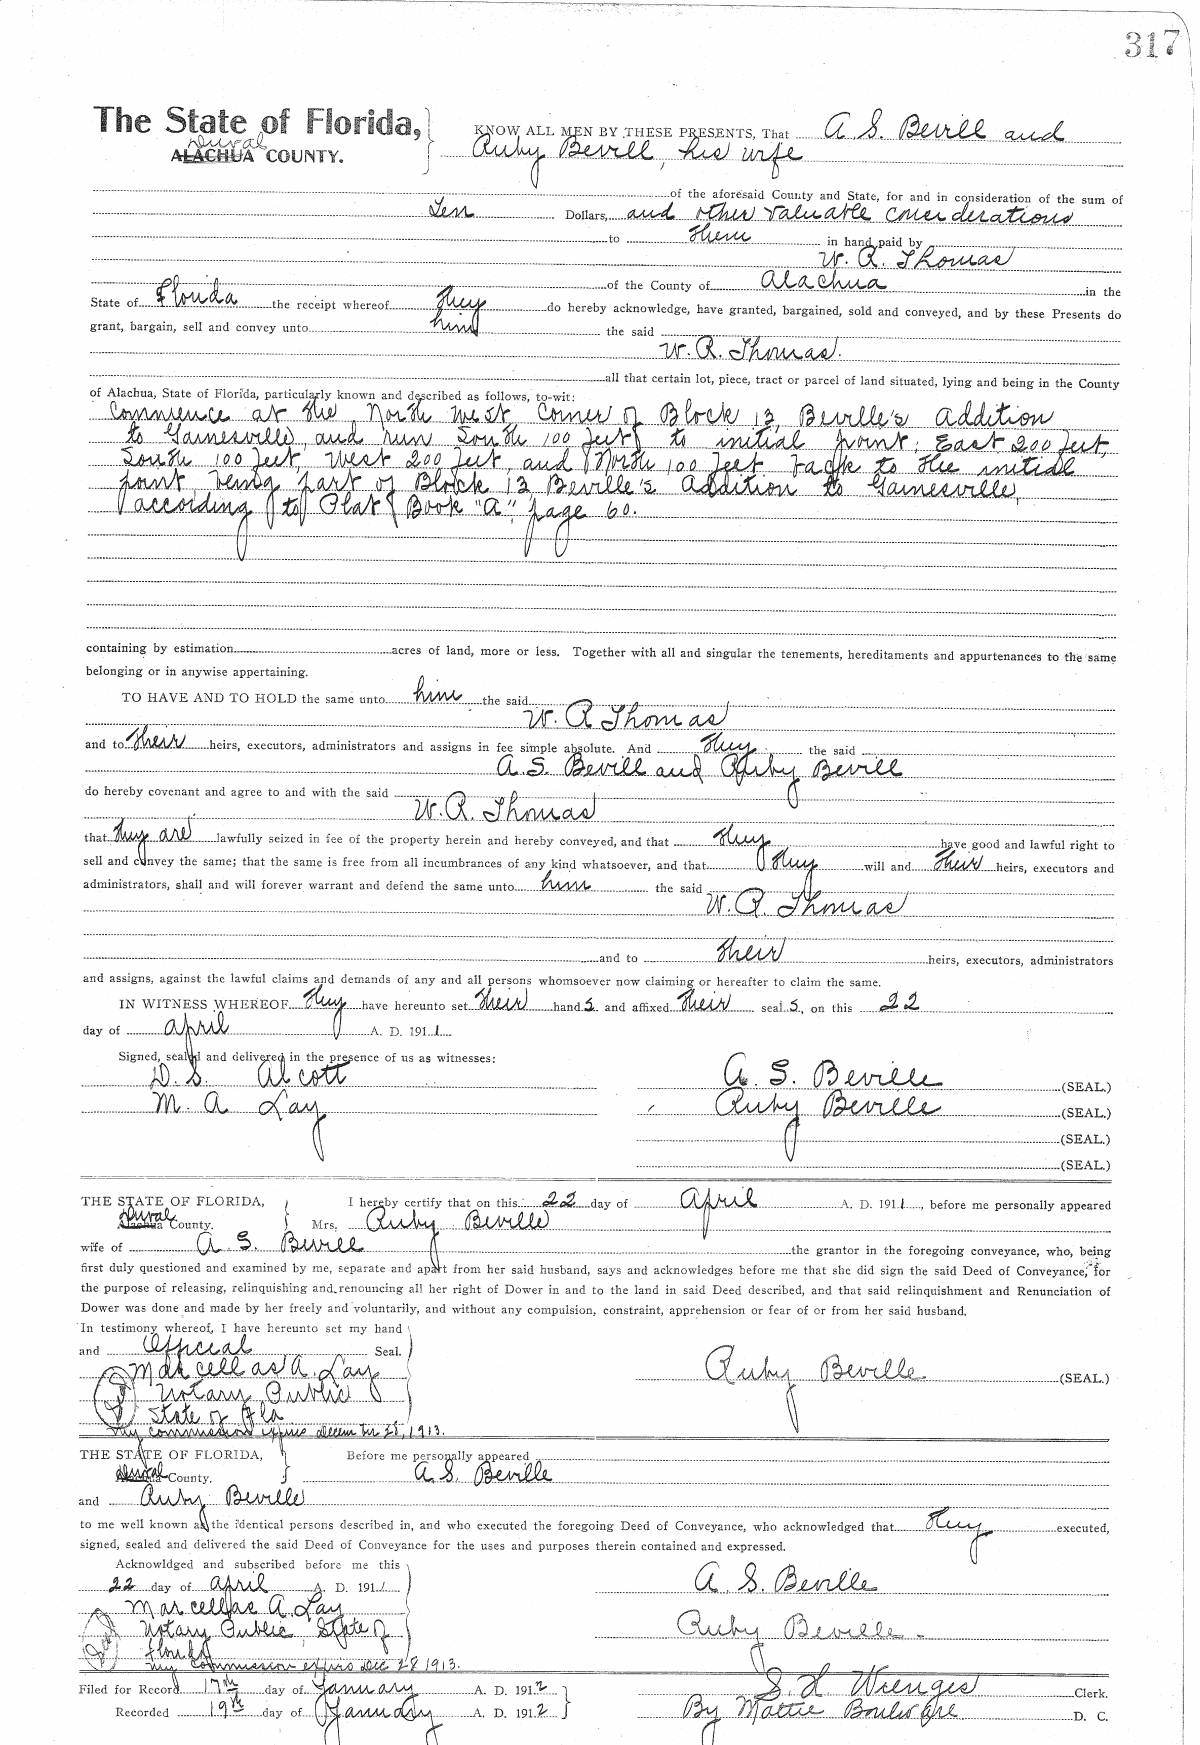 317
The State of Florida,
Duval
ALACHUA COUNTY.
KNOW ALL MEN BY THESE PRESENTS, That A. S. Bevill and
Ruby Bevill, his wife
of the aforesaid County and State, for and in consideration of the sum of
Ten Dollars, and other valuable considerations
to them in hand paid by
W. R. Thomas
of the County of Alachua in the
State of Florida the receipt whereof they do hereby acknowledge, have granted, bargained, sold and conveyed, and by these Presents do
grant, bargain, sell and convey unto him the said
W. R. Thomas.
all that certain lot, piece, tract or parcel of land situated, lying and being in the County
of Alachua, State of Florida, particularly known and described as follows, to-wit:
Commence at the North West Corner of Block 13, Beville's Addition
to Gainesville, and run South 100 feet to initial point; East 200 feet,
South 100 feet, West 200 feet, and North 100 feet back to the initial
point being part of Block 13 Beville's Addition to Gainesville,
according to Plat Book "A", page 60.
containing by estimation acres of land, more or less. Together with all and singular the tenements, hereditaments and appurtenances to the same
belonging or in anywise appertaining.
TO HAVE AND TO HOLD the same unto him the said
W. R Thomas
and to their heirs, executors, administrators and assigns in fee simple absolute. And they the said
A. S. Bevill and Ruby Bevill
do hereby covenant and agree to and with the said
W. R. Thomas
that they are lawfully seized in fee of the property herein and hereby conveyed, and that they have good and lawful right to
sell and convey the same; that the same is free from all incumbrances of any kind whatsoever, and that they will and their heirs, executors and
administrators, shall and will forever warrant and defend the same unto him the said
W. R. Thomas
and to their heirs, executors, administrators
and assigns, against the lawful claims and demands of any and all persons whomsoever now claiming or hereafter to claim the same.
IN WITNESS WHEREOF they have hereunto set their hands and affixed their seals, on this 22
day of April A. D. 1911.
Signed, sealed and delivered in the presence of us as witnesses:
D. S. Alcott
M. A Lay
A. S. Beville (SEAL.)
Ruby Beville (SEAL.)
(SEAL.)
(SEAL.)
THE STATE OF FLORIDA,
Duval
Alachua County.
I hereby certify that on this 22 day of April A. D. 1911, before me personally appeared
Mrs. Ruby Beville
wife of A. S. Bevill the grantor in the foregoing conveyance, who, being
first duly questioned and examined by me, separate and apart from her said husband, says and acknowledges before me that she did sign the said Deed of Conveyance, for
the purpose of releasing, relinquishing and renouncing all her right of Dower in and to the land in said Deed described, and that said relinquishment and Renunciation of
Dower was done and made by her freely and voluntarily, and without any compulsion, constraint, apprehension or fear of or from her said husband.
In testimony whereof, I have hereunto set my hand
and Official Seal.
Marcellas A. Lay
Notary Public
State of Fla
My commission expires December 28, 1913.
Ruby Beville (SEAL.)
THE STATE OF FLORIDA,
Duval
County.
Before me personally appeared
A. S. Beville
and Ruby Beville
to me well known as the identical persons described in, and who executed the foregoing Deed of Conveyance, who acknowledged that they executed,
signed, sealed and delivered the said Deed of Conveyance for the uses and purposes therein contained and expressed.
Acknowldged and subscribed before me this
22 day of April A. D. 1911
Marcellas A. Lay
Notary Public, State of
Florida
My Commission expires Dec 28 1913.
A. S. Beville
Ruby Beville
Filed for Record 17th day of January A. D. 1912
Recorded 19th day of January A. D. 1912
S. H. Wienges Clerk.
By Mattie D. C.